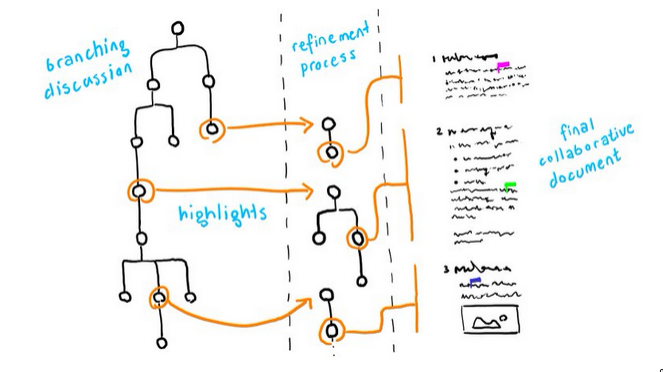 branching
discussion
refinement
process
highlights
1
2
3
final
collaborative
document